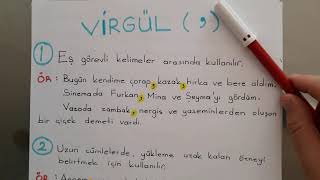 VİRGÜL ( , )
1 Eş görevli kelimeler arasında kullanılır.
ÖR: Bugün kendime çorap, kazak, hırka ve bere aldım.
Sinemada Furkan, Mina ve Şeyma'yı gördüm.
Vazoda zambak, nergis ve yaseminlerden oluşan
bir çiçek demeti vardı.
2 Uzun cümlelerde, yükleme uzak kalan özneyi
belirtmek için kullanılır.
ÖR: